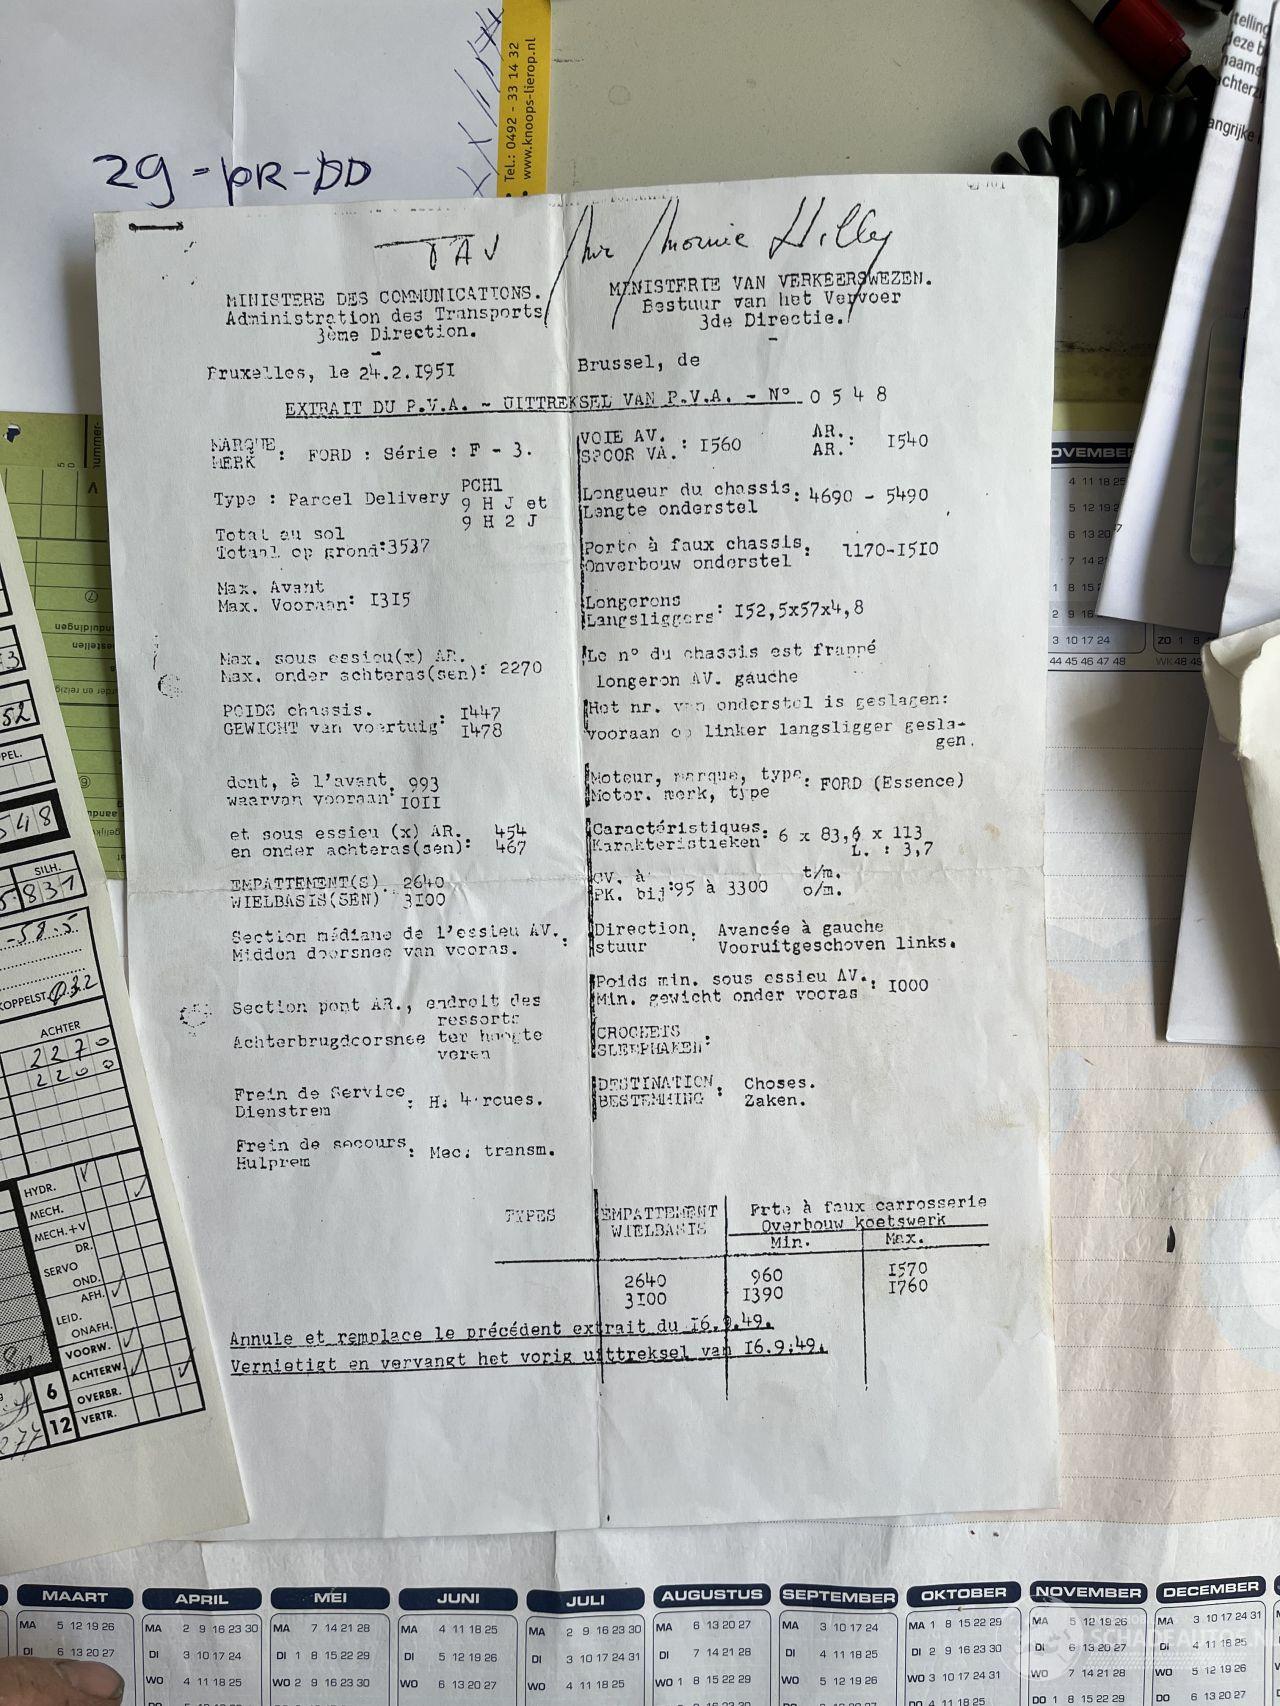 Tel.: 0492 - 33 14 32
www.knoops-lierop.nl
29 = pR-DD
TAV
MINISTERE DES COMMUNICATIONS.
Administration des Transports
3ème Direction.
MINISTERIE VAN VERKEERSWEZEN.
Bestuur van het Vervoer
3de Directie.
Bruxelles, le 24.2.1951
Brussel, de
EXTRAIT DU P.V.A. - UITTREKSEL VAN P.V.A. - N° 0548
MARQUE
MERK : FORD : Série : F - 3.
Type : Parcel Delivery PCH1
9 H J et
9 H 2 J
Total au sol
Totaal op grond: 3537
Max. Avant
Max. Vooraan: 1315
Max. sous essieu(x) AR.
Max. onder achteras(sen): 2270
POIDS chassis. : 1447
GEWICHT van voertuig: 1478
dont, à l'avant. 993
waarvan vooraan: 1011
et sous essieu (x) AR. 454
en onder achteras(sen): 467
EMPATTEMENT(S). 2640
WIELBASIS(SEN) 3100
Section médiane de l'essieu AV. :
Midden doorsnee van vooras.
Section pont AR., endroit des
ressorts
Achterbrugdoorsnee ter hoogte
veren
Frein de Service : H. 4 roues.
Dienstrem
Frein de secours : Mec. transm.
Hulprem
VOIE AV. : 1560 AR. : 1540
SPOOR VA. AR.
Longueur du chassis : 4690 - 5490
Lengte onderstel
Porte à faux chassis. : 1170-1510
Onverbouw onderstel
Longerons
Langsliggers : 152,5x57x4,8
Le n° du chassis est frappé
longeron AV. gauche
Het nr. van onderstel is geslagen:
vooraan op linker langsligger gesla-
gen.
Moteur, marque, type : FORD (Essence)
Motor. merk, type
Caractéristiques : 6 x 83,6 x 113
Karakteristieken L. : 3,7
CV. à t/m.
PK. bij: 95 à 3300 o/m.
Direction. Avancée à gauche
stuur : Vooruitgeschoven links.
Poids min. sous essieu AV. : 1000
Min. gewicht onder vooras
CROCHETS
SLEEPHAKEN :
DESTINATION : Choses.
BESTEMMING Zaken.
TYPES EMPATTEMENT Prte à faux carrosserie
WIELBASIS Overbouw koetswerk
Min. Max.
2640 960 1570
3100 1390 1760
Annule et remplace le précédent extrait du 16.9.49.
Vernietigt en vervangt het vorig uittreksel van 16.9.49.
SILH.
KOPPELST.
ACHTER
2270
2200
HYDR.
MECH.
MECH.+V
DR.
SERVO
OND.
AFH.
LEID.
ONAFH.
VOORW.
ACHTERW.
OVERBR.
VERTR.
6
12
MAART APRIL MEI JUNI JULI AUGUSTUS SEPTEMBER OKTOBER NOVEMBER DECEMBER
MA 5 12 19 26 MA 2 9 16 23 30 MA 7 14 21 28 MA 4 11 18 25 MA 2 9 16 23 30 MA 6 13 20 27 MA 3 10 17 24 MA 1 8 15 22 29 MA 5 12 19 26 MA 3 10 17 24 31
DI 6 13 20 27 DI 3 10 17 24 DI 1 8 15 22 29 DI 5 12 19 26 DI 3 10 17 24 31 DI 7 14 21 28 DI 4 11 18 25 DI 2 9 16 23 30 DI 6 13 20 27 DI 4 11 18 25
WO 4 11 18 25 WO 2 9 16 23 30 WO 6 13 20 27 WO 4 11 18 25 WO 1 8 15 22 29 WO 5 12 19 26 WO 3 10 17 24 31 WO 7 14 21 28 WO 5 12 19 26
SCHADEAUTOS.NL